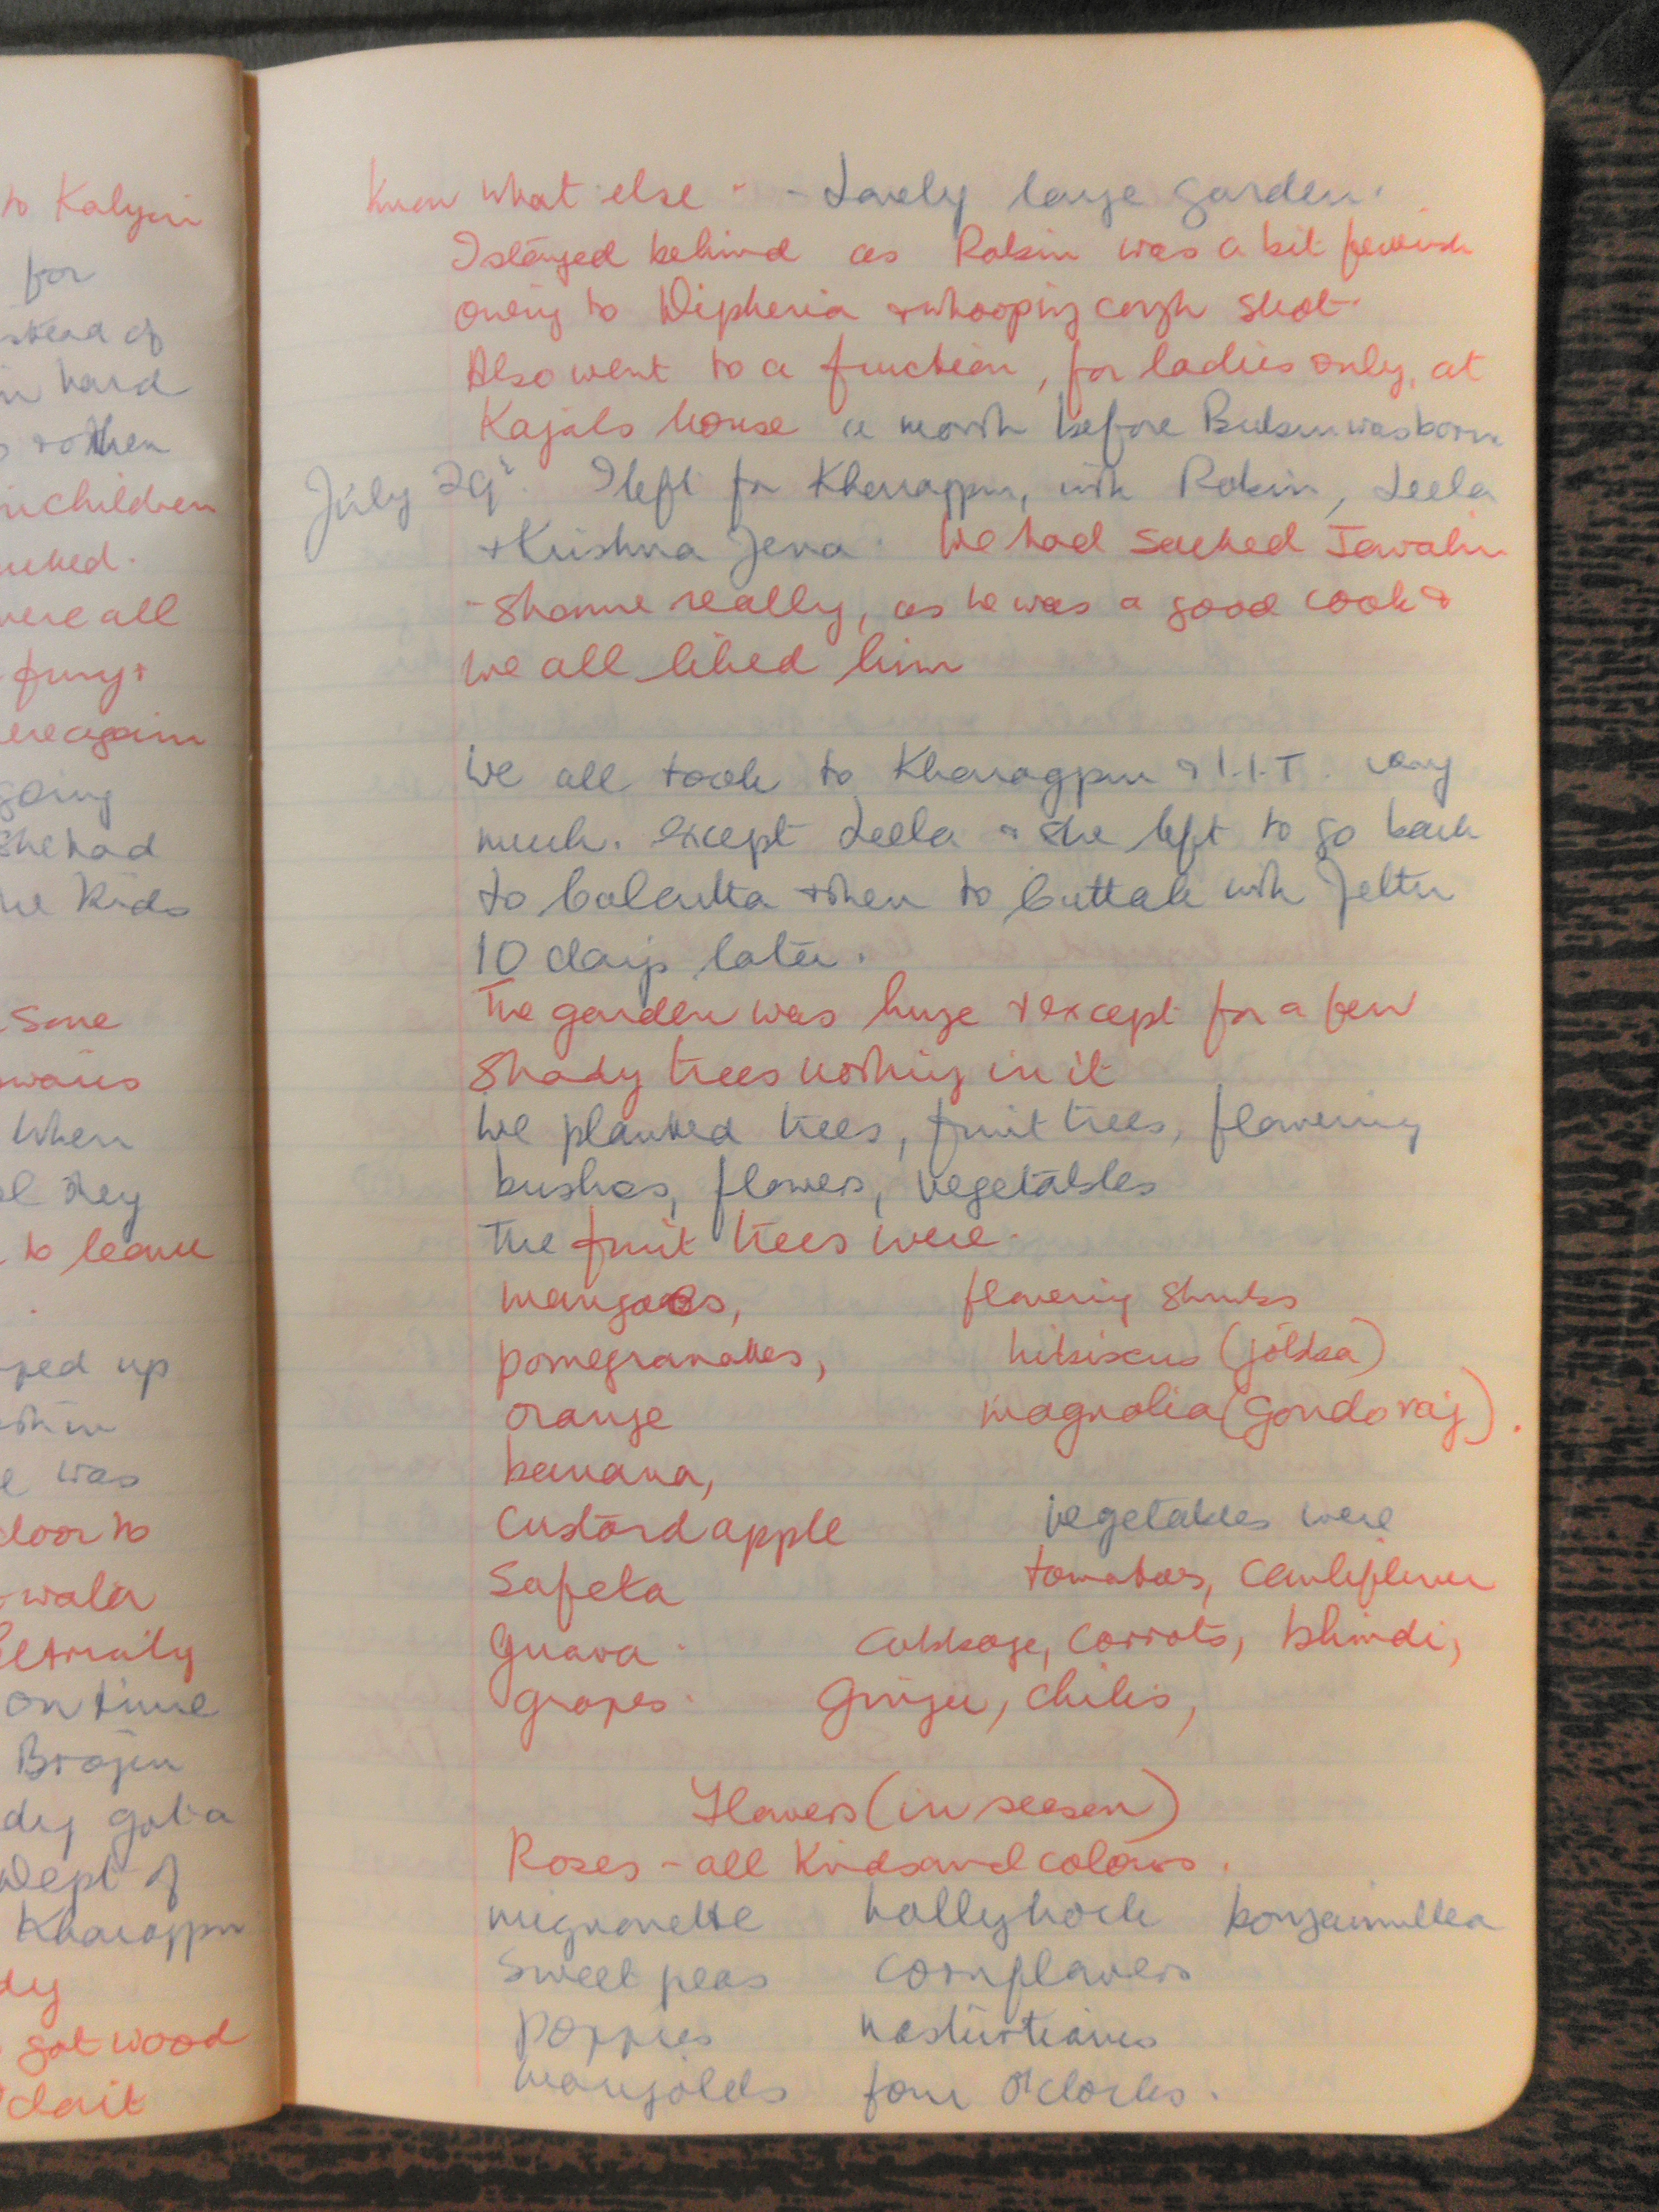 to Kalyani
for
instead of
hard
+ other
children
were all
fury +
again
going
She had
the kids
Some
When
they
to leave
up
was
door to
on time
Brajen
got a
Dept of
Kharagpur
got wood
know what else - - Lovely large garden.
I stayed behind as Robin was a bit feverish
owing to Dipheria + whooping cough shot.
Also went to a function, for ladies only, at
Kajals house a month before Bubun was born
July 29th. I left for Kharagpur, with Robin, Leela
+ Krishna Jena. We had sacked Jawahir
- Shame really, as he was a good cook &
we all liked him
We all took to Kharagpur & I.I.T. very
much. except Leela & she left to go back
to Calcutta + then to Cuttak with Jeltu
10 days later.
The garden was huge + except for a few
shady trees nothing in it
We planted trees, fruit trees, flowering
bushes, flowers, vegetables
The fruit trees were.
mangoes, flowering shrubs
pomegranattes, hibiscus (jobba)
orange magnolia (Gondoraj).
banana,
Custard apple vegetables were
Safeta tomatoes, Cauliflower
Guava. Cabbage, carrots, bhindi,
grapes. Ginger, chilis,
Flowers (in season)
Roses - all kinds and colours.
mignonette hollyhock bougainvillea
Sweet peas cornflowers
poppies nasturtiams
marigolds four O'clocks.